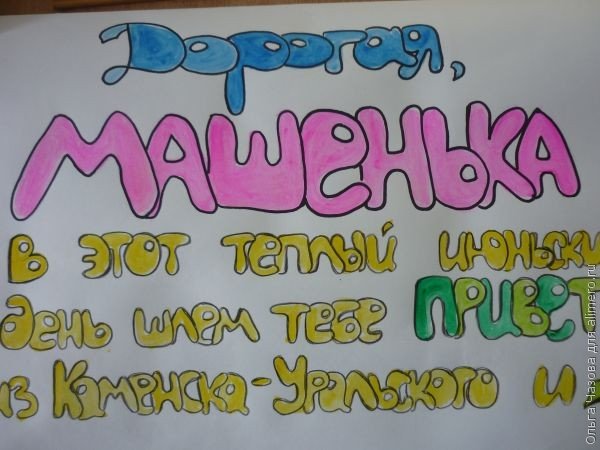 Дорогая,
МАШЕНЬКА
В этот теплый июньски
день шлем тебе ПРИВЕТ
из Каменска-Уральского и
Ольга Чазова для alimero.ru